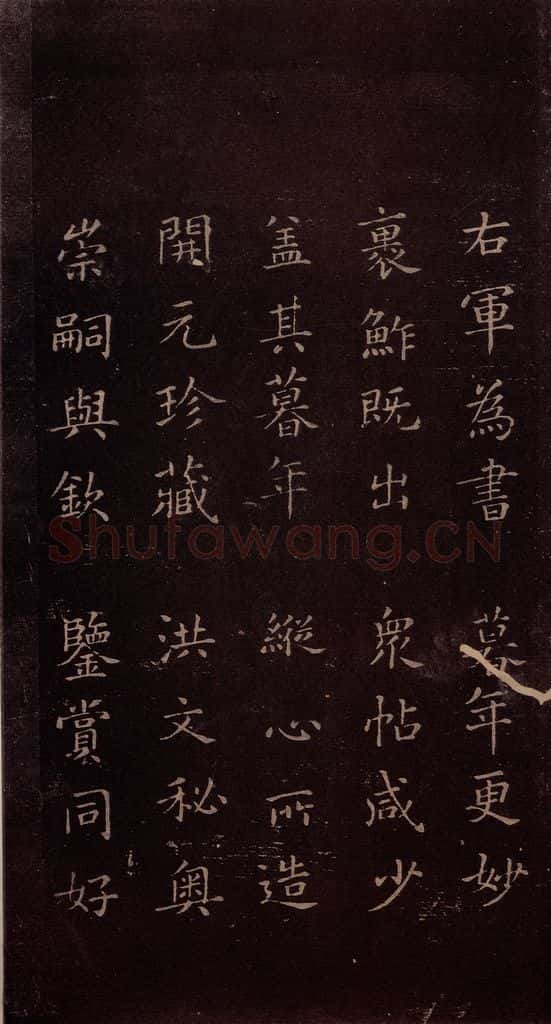 右軍為書 暮年更妙
裹鮓既出 衆帖咸少
盖其暮年 縱心所造
開元珍藏 洪文秘奥
崇嗣與欽 鑒賞同好
Shufawang.CN